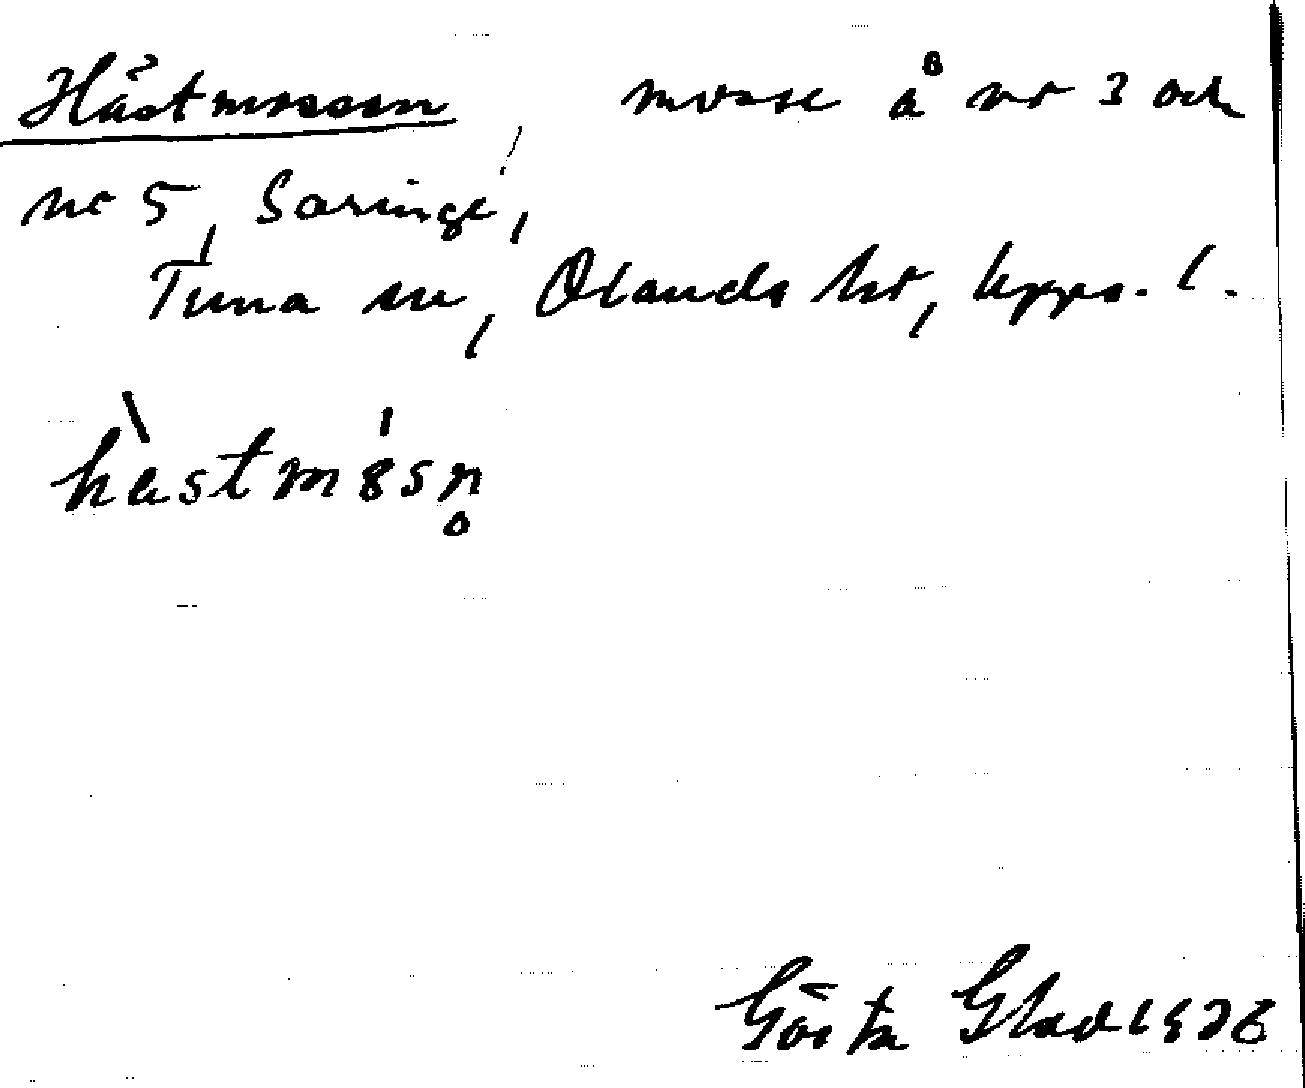 Hästmossen, mosse å nr 3 och
nr 5, Saringe,
Tuna sn, Olands hd, Upps. l.
hæ̀stmɵ́sn̥
Gösta Glad 1926